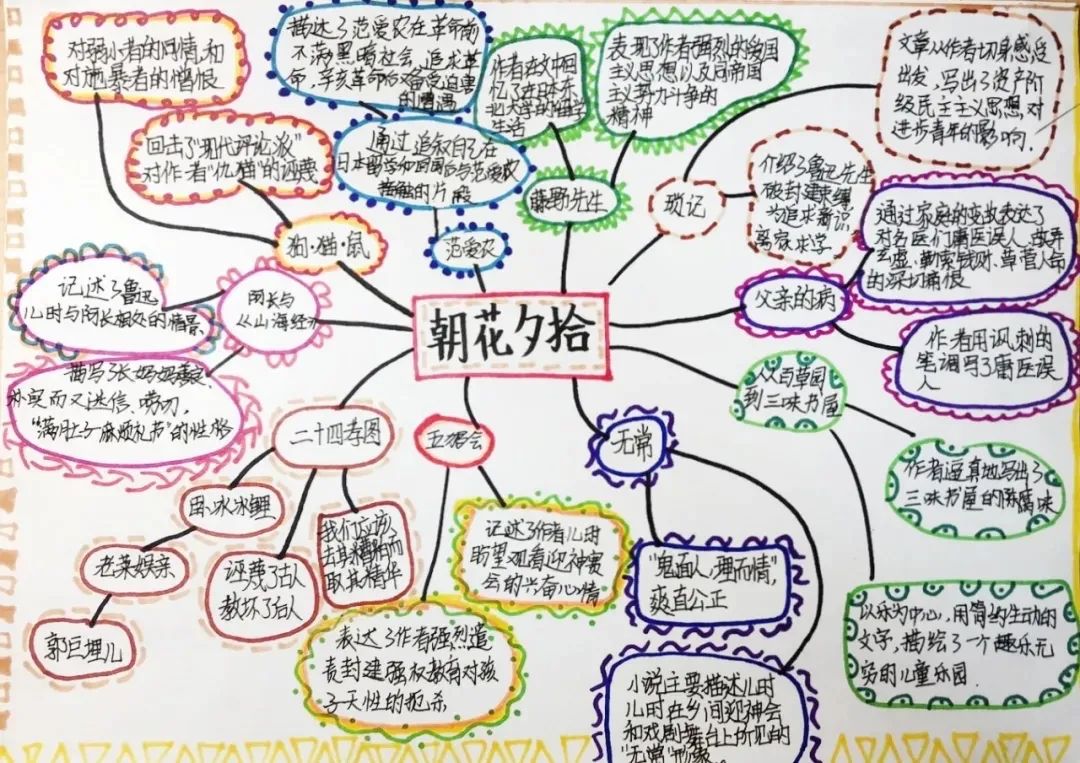 朝花夕拾
狗·猫·鼠
对弱小者的同情,和
对施暴者的憎恨
回击了"现代评论派"
对作者"仇猫"的诬蔑
范爱农
描述了范爱农在革命前
不满黑暗社会,追求革
命,辛亥革命后又备受迫害
的遭遇
通过追叙自己在
日本留学和回国后与范爱农
接触的片段
藤野先生
作者在文中回
忆了在日本东
北大学的留学
生活
表现了作者强烈的爱国
主义思想以及同帝国
主义势力斗争的
精神
琐记
文章从作者切身感受
出发,写出了资产阶
级民主主义思想对
进步青年的影响.
介绍了鲁迅先生
破封建束缚
为追求新识
离家求学
父亲的病
通过家庭的变故表达了
对名医们庸医误人、故弄
玄虚、勒索钱财、草菅人命
的深切痛恨
作者用讽刺的
笔调写了庸医误
人
从百草园
到三味书屋
作者逼真地写出了
三味书屋的陈腐味
以乐为中心,用简约生动的
文字,描绘了一个趣乐无
穷的儿童乐园.
无常
"鬼面人,理而情",
爽直公正
小说主要描述儿时
儿时在乡间迎神会
和戏剧舞台上所见的
"无常"形象.
五猖会
记述了作者儿时
盼望观看迎神赛
会的兴奋心情
表达了作者强烈谴
责封建强权教育对孩
子天性的扼杀
二十四孝图
卧冰冰鲤
老莱娱亲
郭巨埋儿
诬蔑了古人
教坏了后人
我们应该
去其糟粕而
取其精华
阿长与
《山海经》
记述了鲁迅
儿时与阿长相处的情景
描写了长妈妈善良、
朴实而又迷信、唠叨,
"满肚子麻烦礼节"的性格